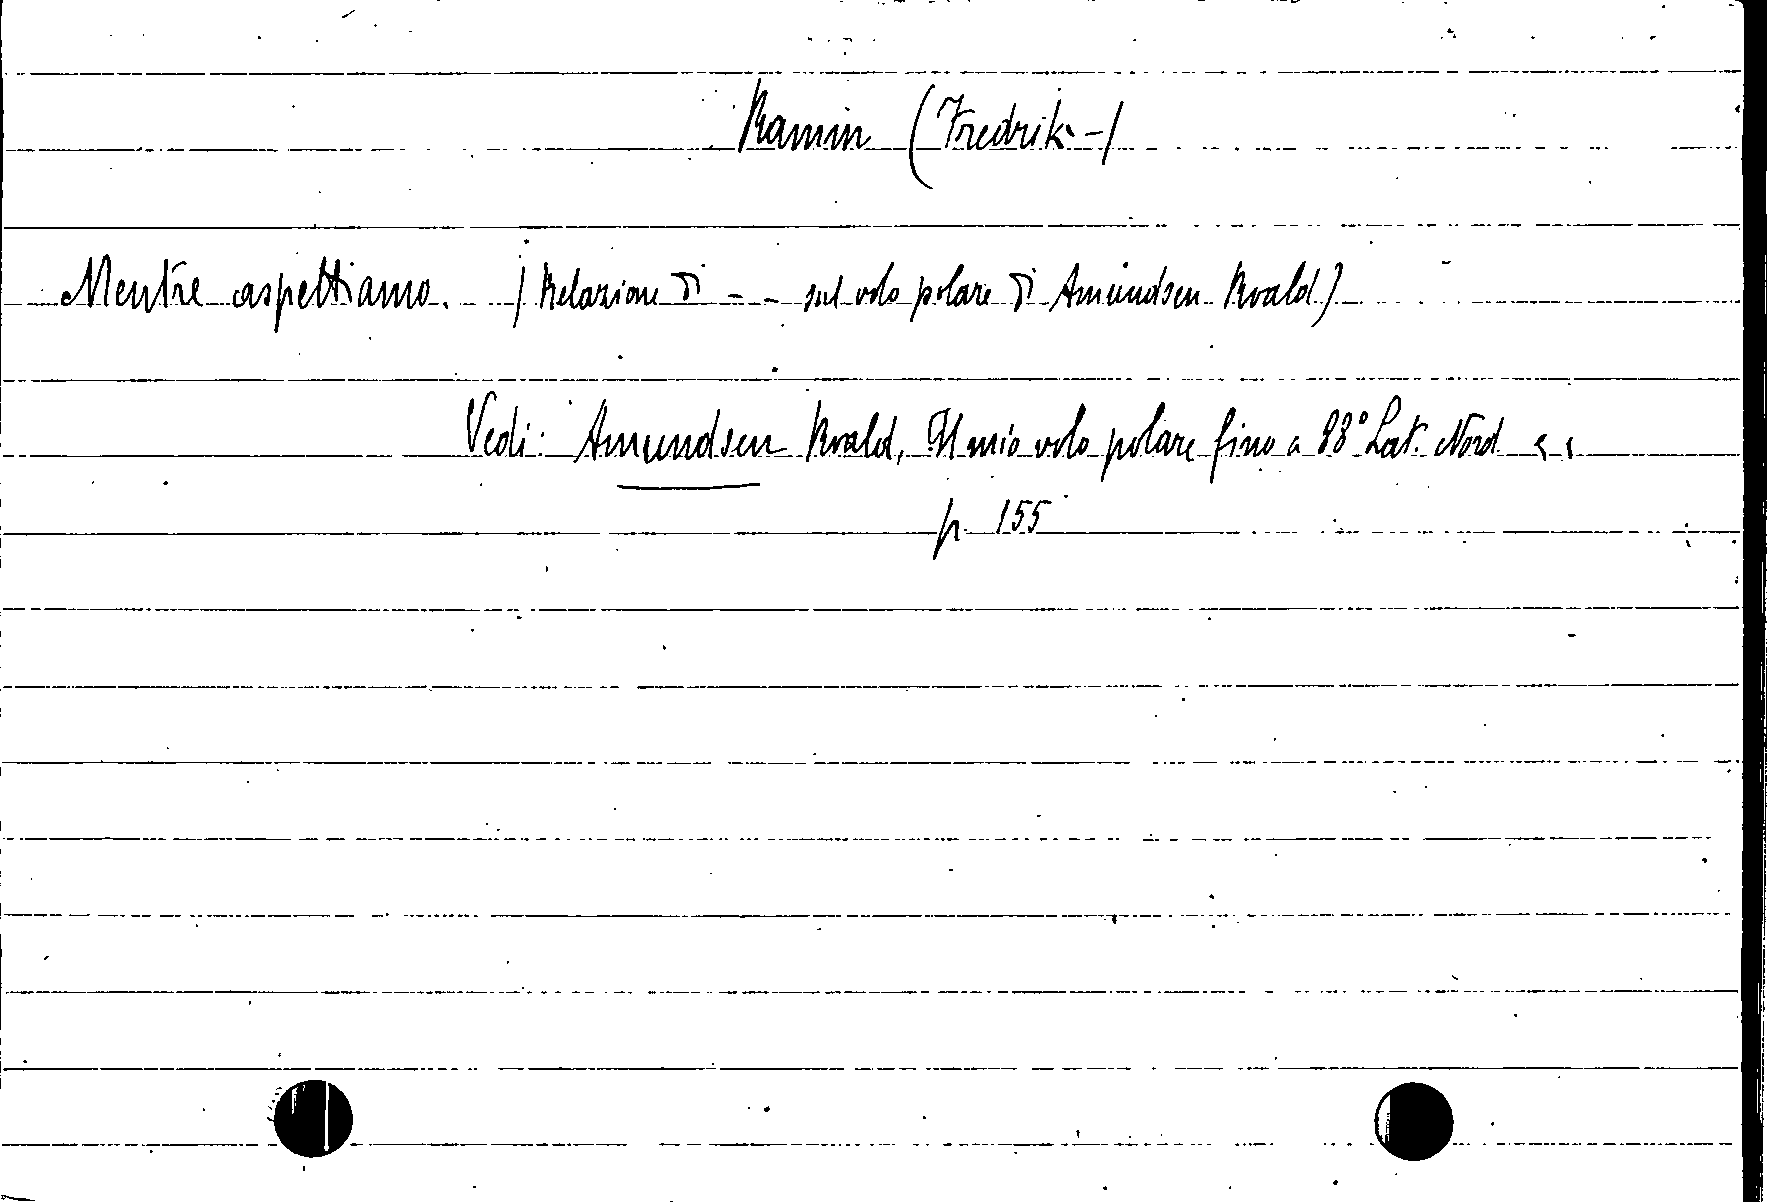 Ramm (Fredrik -)
Mentre aspettiamo. (Relazione di - - sul volo polare di Amundsen Roald)
Vedi: Amundsen Roald, Il mio volo polare fino a 88° Lat. Nord
p. 155